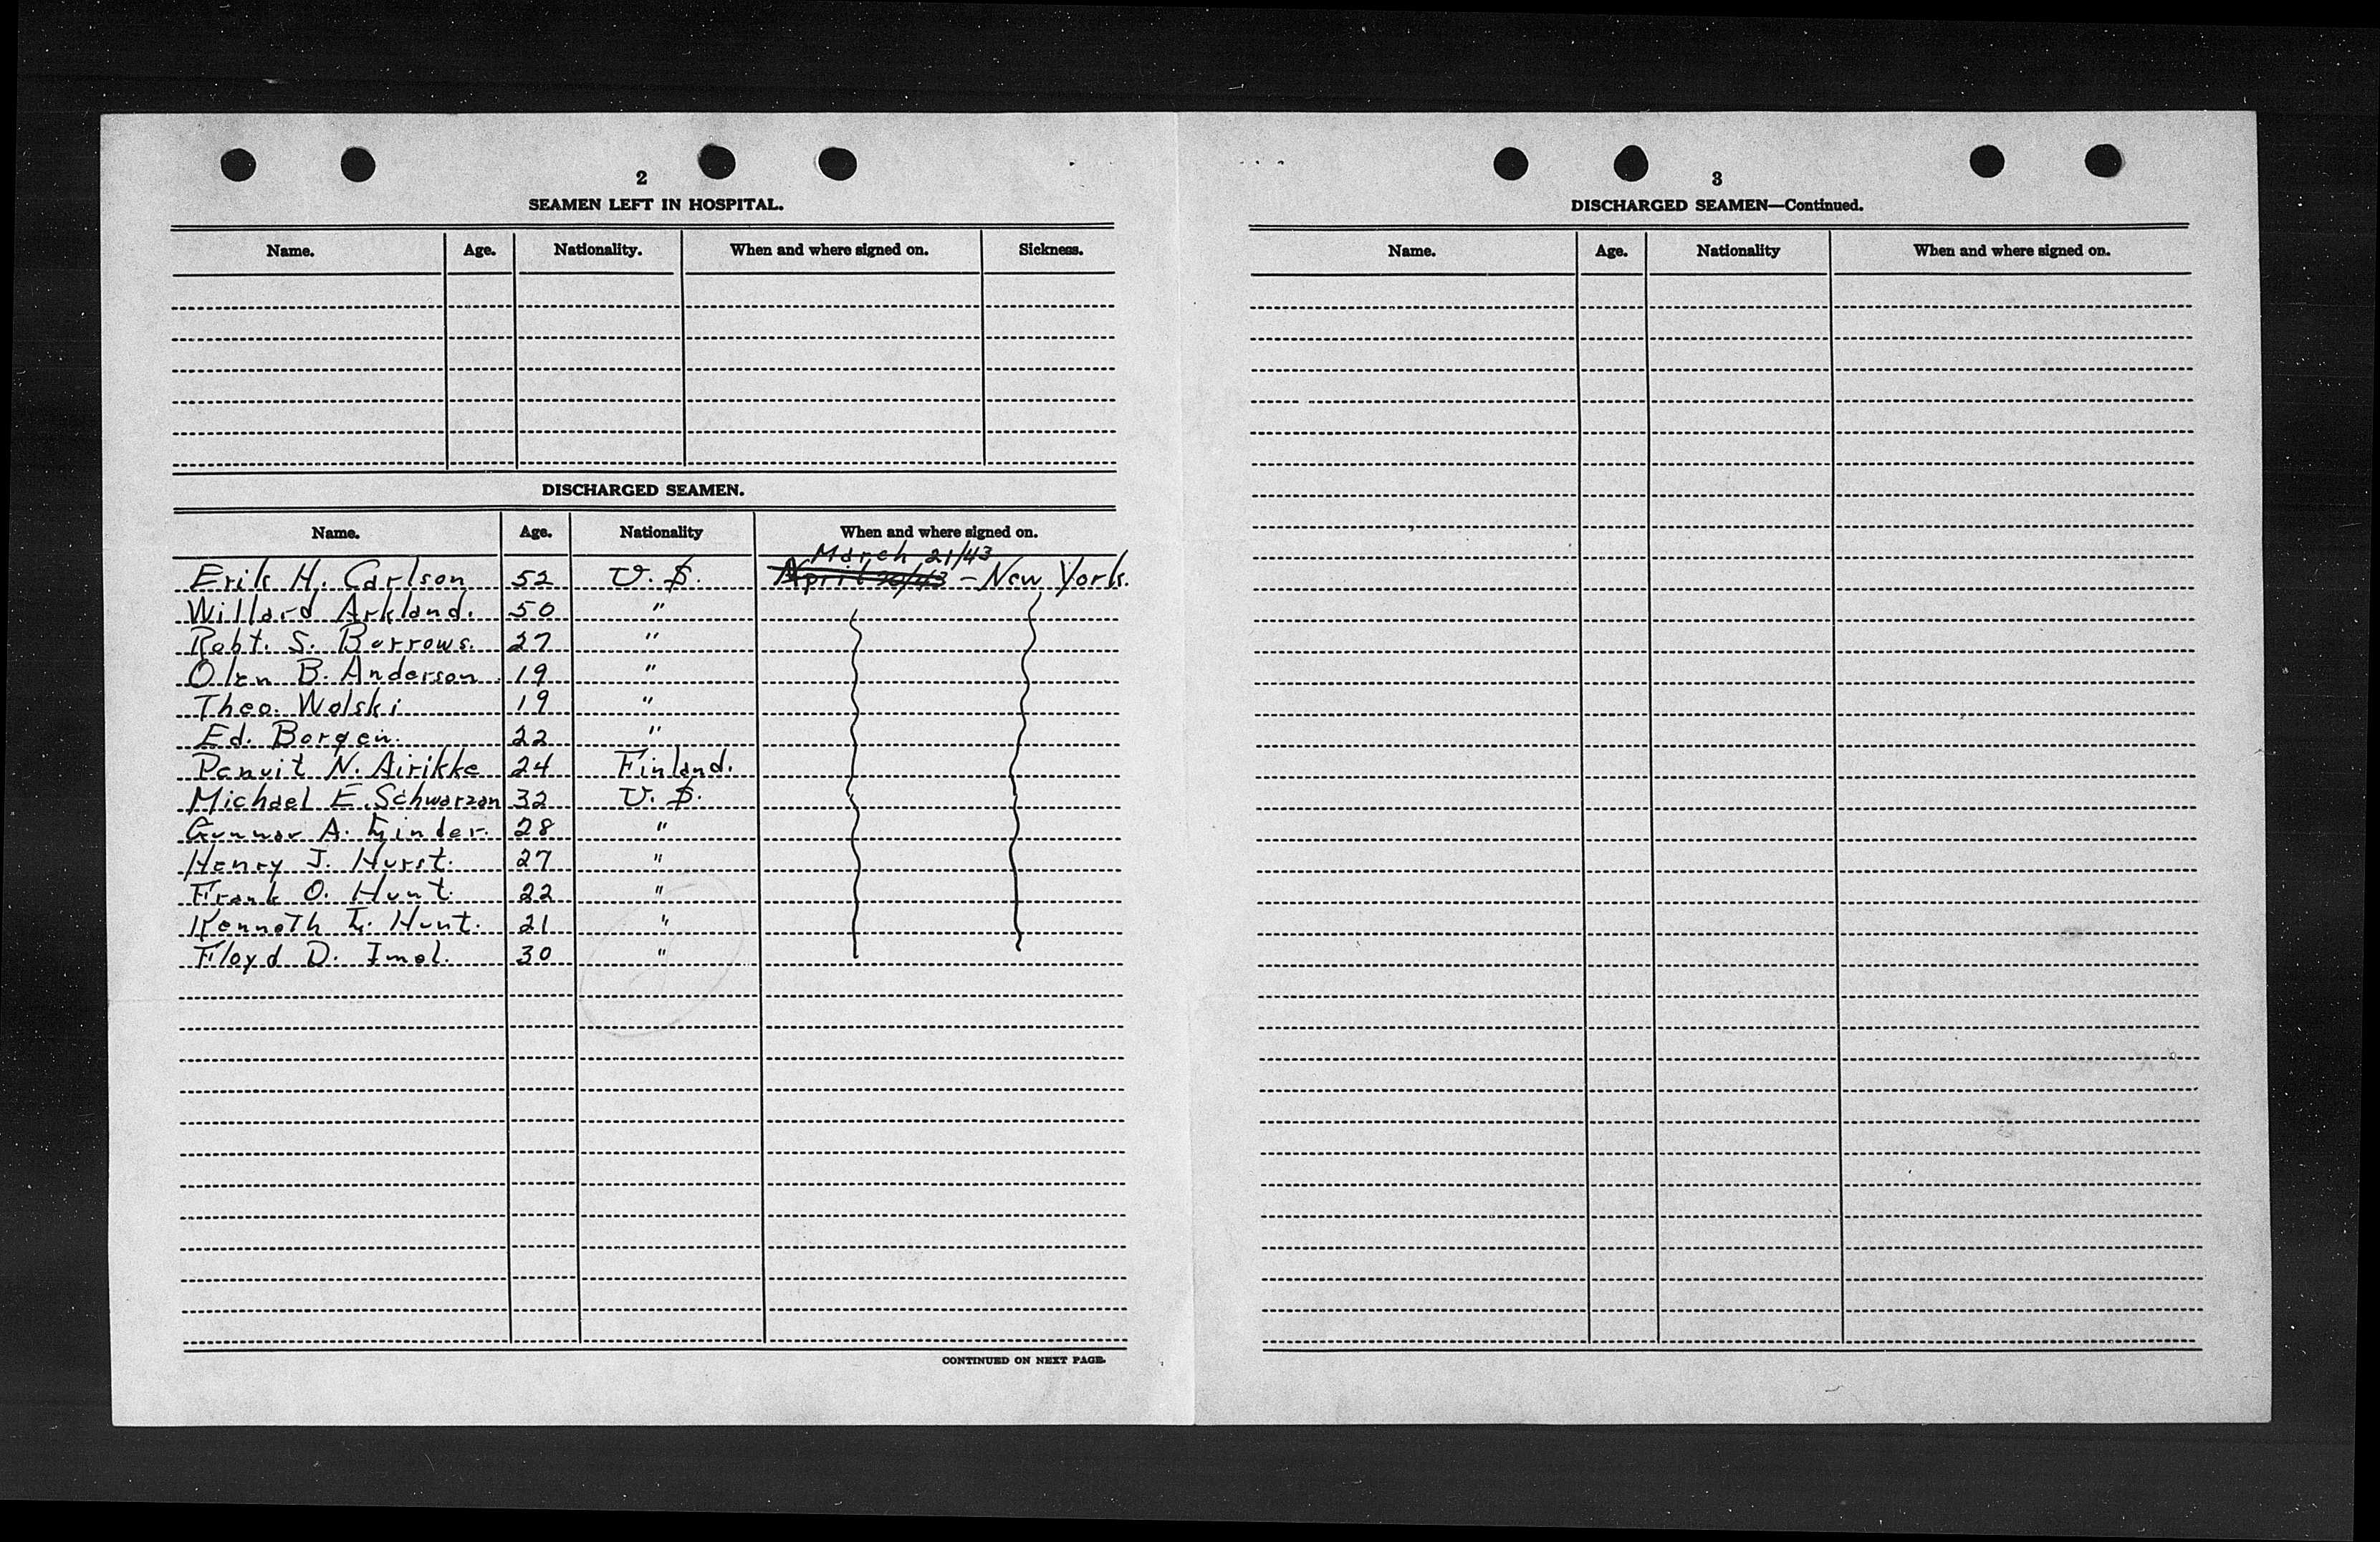 2
SEAMEN LEFT IN HOSPITAL.
Name. Age. Nationality. When and where signed on. Sickness.
DISCHARGED SEAMEN.
Name. Age. Nationality When and where signed on.
March 21/43
Erik H. Carlson 52 U.S. April 20/43 - New York.
Willard Arkland. 50 "
Robt. S. Burrows. 27 "
Olen B. Anderson. 19 "
Theo. Wolski 19 "
Ed. Borgen. 22 "
N. Airikke 24 Finland.
Michael E. Schwarzan 32 U.S.
Gunnar A. 28 "
Henry J. Hurst. 27 "
Frank O. Hunt. 22 "
Kenneth L. Hunt. 21 "
Floyd D. Imel. 30 "
CONTINUED ON NEXT PAGE.
3
DISCHARGED SEAMEN—Continued.
Name. Age. Nationality When and where signed on.